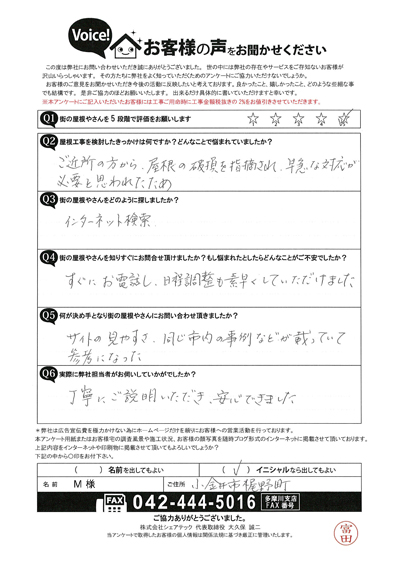 Voice!
お客様の声をお聞かせください
この度は弊社にお問い合わせいただき誠にありがとうございました。世の中には弊社の存在やサービスをご存知ないお客様が
沢山いらっしゃいます。その方たちに弊社をよく知っていただくためのアンケートにご協力いただけないでしょうか。
お客様のご意見をお聞かせいただき今後の活動に反映したいと考えております。良かったこと、嬉しかったこと、どのような些細な事
でも結構です。是非ご協力のほどお願いいたします。出来るだけ具体的に書いていただけますと幸いです。
※本アンケートにご記入いただいたお客様には工事ご用命時に工事金額税抜きの2%をお値引きさせていただきます。
Q1 街の屋根やさんを5段階で評価をお願いします ☆ ☆ ☆ ☆ ☆
Q2 屋根工事を検討したきっかけは何ですか？どんなことで悩まれていましたか？
ご近所の方から、屋根の破損を指摘され、早急な対応が
必要と思われたため
Q3 街の屋根やさんをどのように探しましたか？
インターネット検索
Q4 街の屋根やさんを知りすぐにお問合せ頂けましたか？もし悩まれたとしたらどんなことがご不安でしたか？
すぐに、お電話し、日程調整も素早くしていただけました
Q5 何が決め手となり街の屋根やさんにお問い合わせ頂きましたか？
サイトの見やすさ、同じ市内の事例などが載っていて
参考になった
Q6 実際に弊社担当者がお伺いしていかがでしたか？
丁寧にご説明いただき、安心できました
＊弊社は広告宣伝費を極力かけない為にホームページだけを頼りにお客様への営業活動を行っております。
本アンケート用紙またはお客様宅の調査風景や施工状況、お客様の顔写真を随時ブログ形式のインターネットに掲載させて頂いております。
上記内容をインターネットや印刷物に掲載させて頂いてもよろしいでしょうか？
下記の中から〇印をお付下さい。
（　）名前を出してもよい （✓）イニシャルなら出してもよい
名前 M 様 ご住所 小金井市梶野町
FAX 042-444-5016 多摩川支店 FAX 番号
ご協力ありがとうございました。
株式会社シェアテック 代表取締役 大久保 誠二
当アンケートで取得したお客様の個人情報は関係法規に基づき厳正に管理いたします。
富田